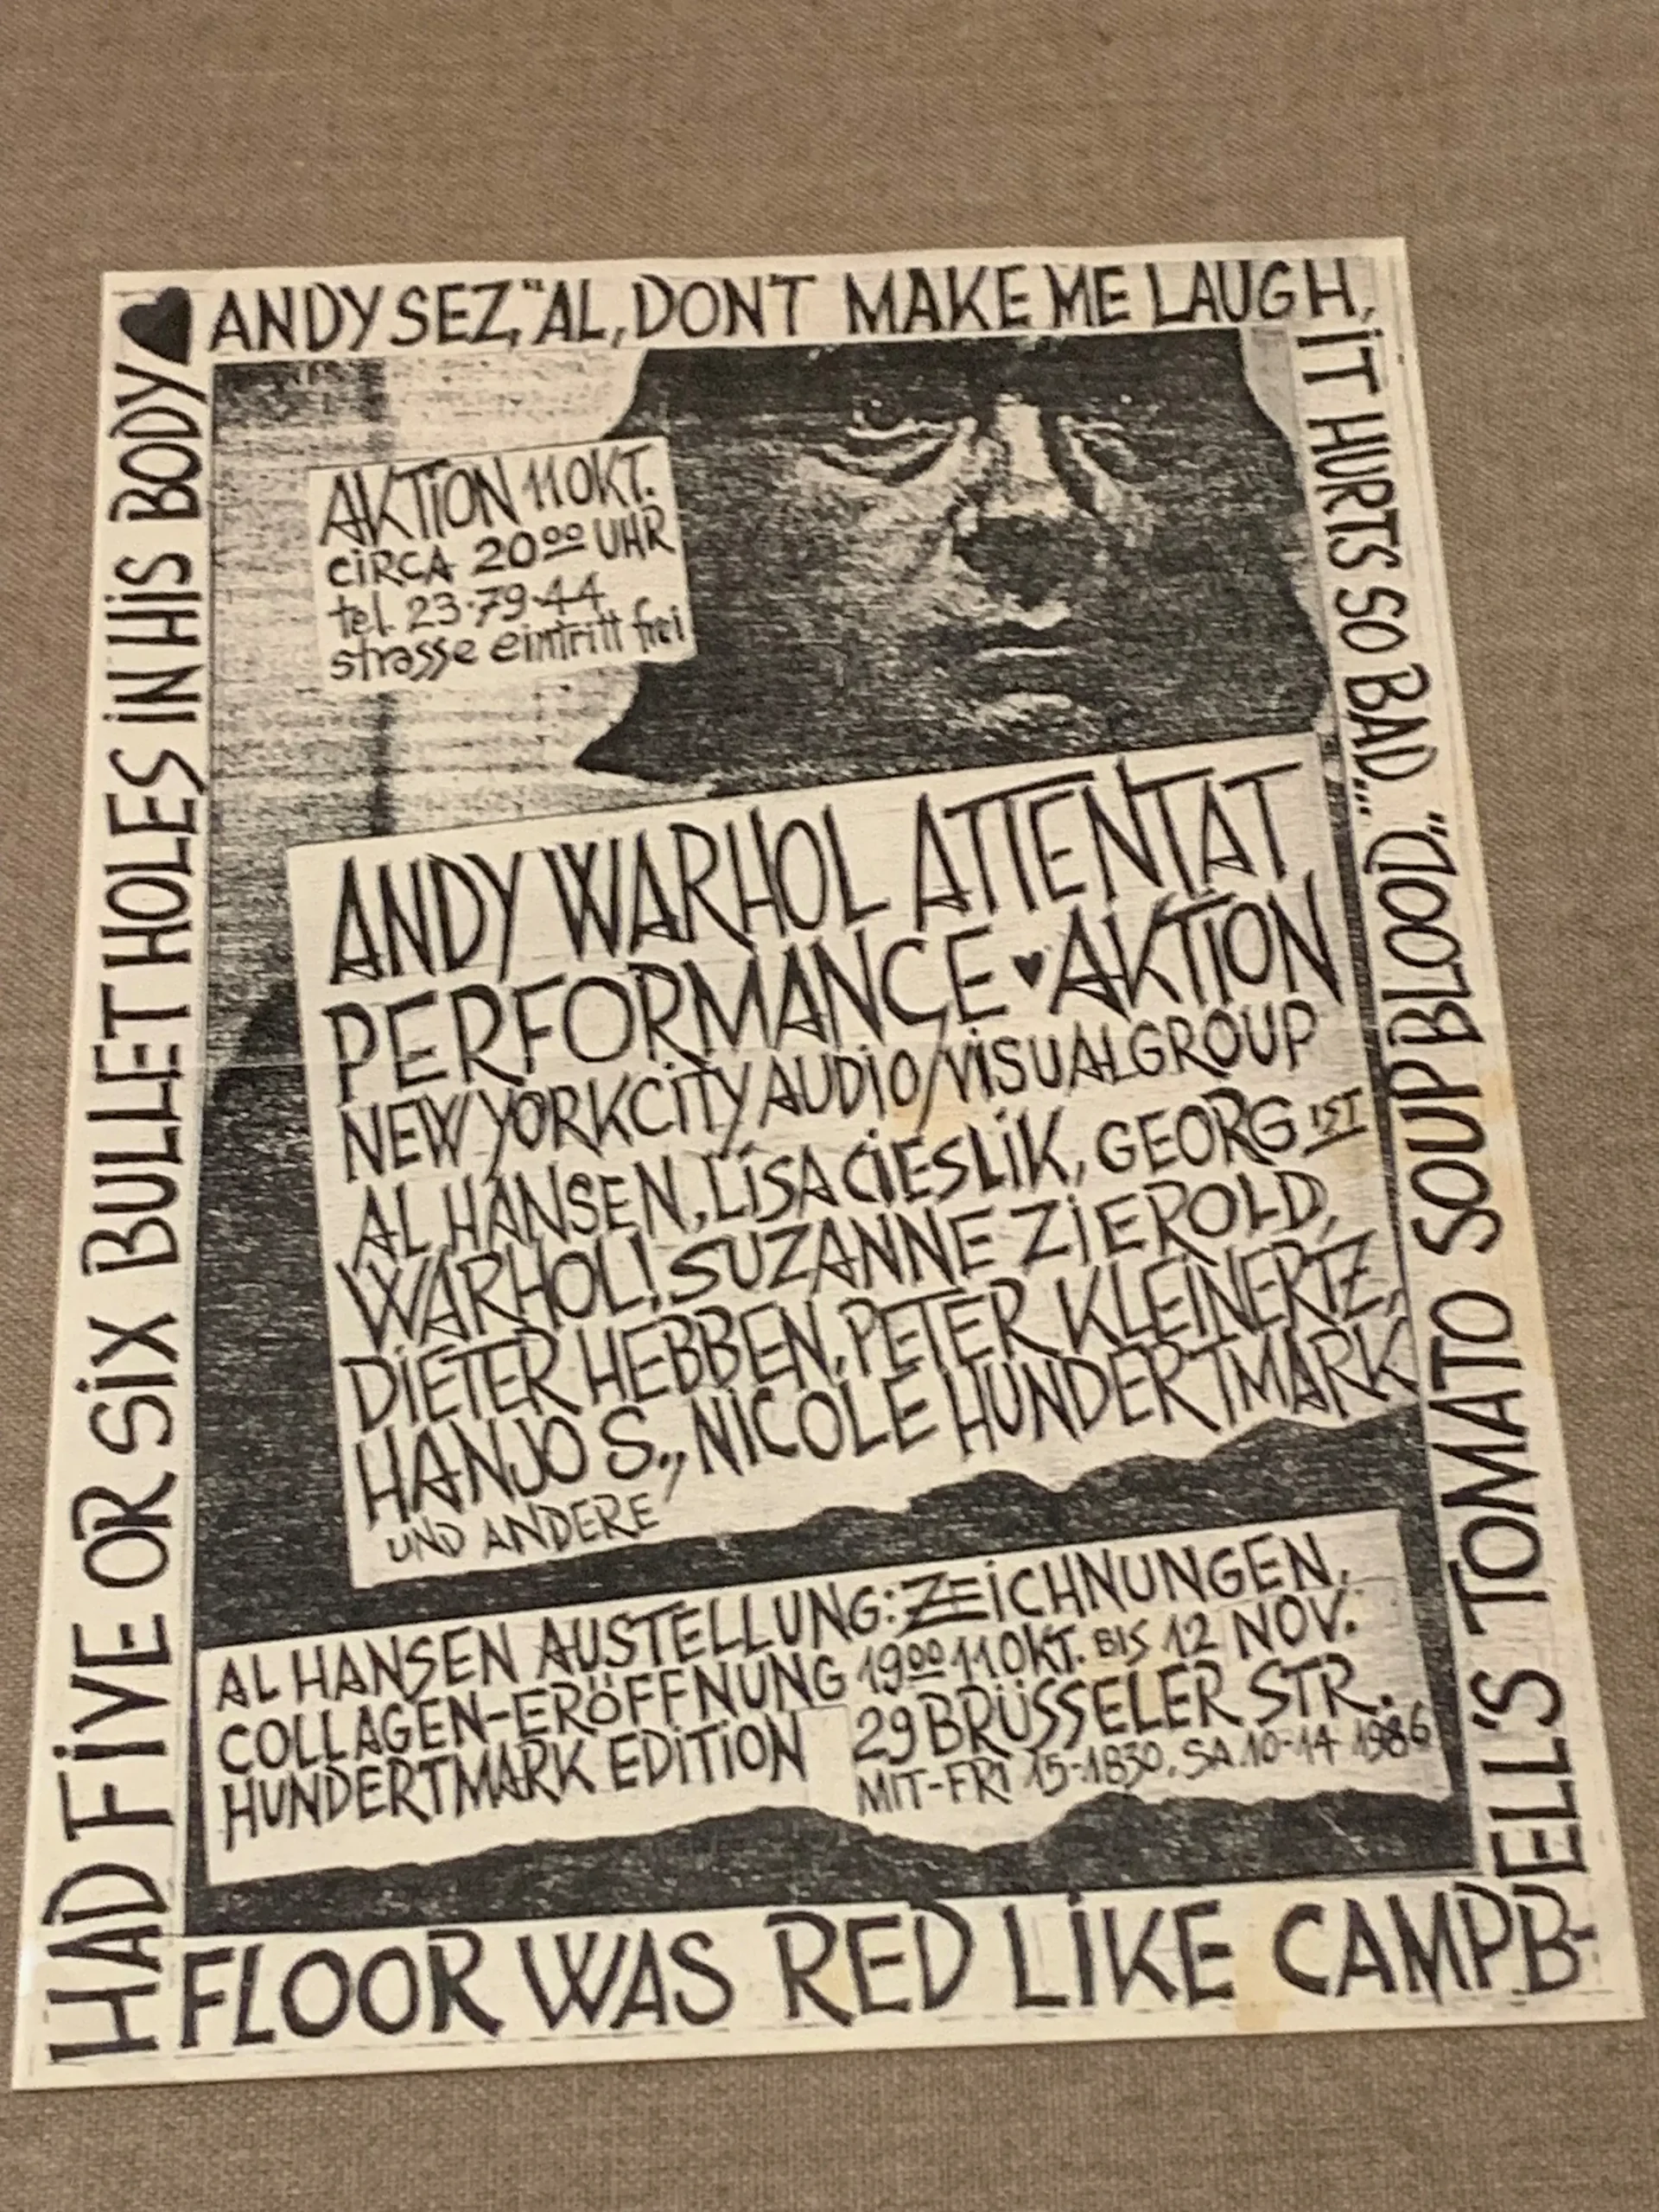 ANDY SEZ, "AL, DON'T MAKE ME LAUGH,
IT HURTS SO BAD..." "(BLOOD)
AKTION 11 OKT.
CIRCA 20⁰⁰ UHR
tel. 23·79·44
strasse eintritt frei
ANDY WARHOL ATTENTAT
PERFORMANCE ♥ AKTION
NEW YORK CITY AUDIO/VISUAL GROUP
AL HANSEN, LISA CIESLIK, GEORG IST
WARHOL! SUZANNE ZIEROLD,
DIETER HEBBEN, PETER KLEINERTZ,
HANJO S., NICOLE HUNDERTMARK
UND ANDERE
AL HANSEN AUSTELLUNG: ZEICHNUNGEN,
COLLAGEN-ERÖFFNUNG 19⁰⁰ 11 OKT. BIS 12 NOV.
HUNDERTMARK EDITION 29 BRÜSSELER STR.
MIT-FRI 15-1830. SA. 10-14 1986
SOUP TOMATO
ELL'S
FLOOR WAS RED LIKE CAMPB-
HAD FIVE OR SIX BULLET HOLES IN HIS BODY ♥